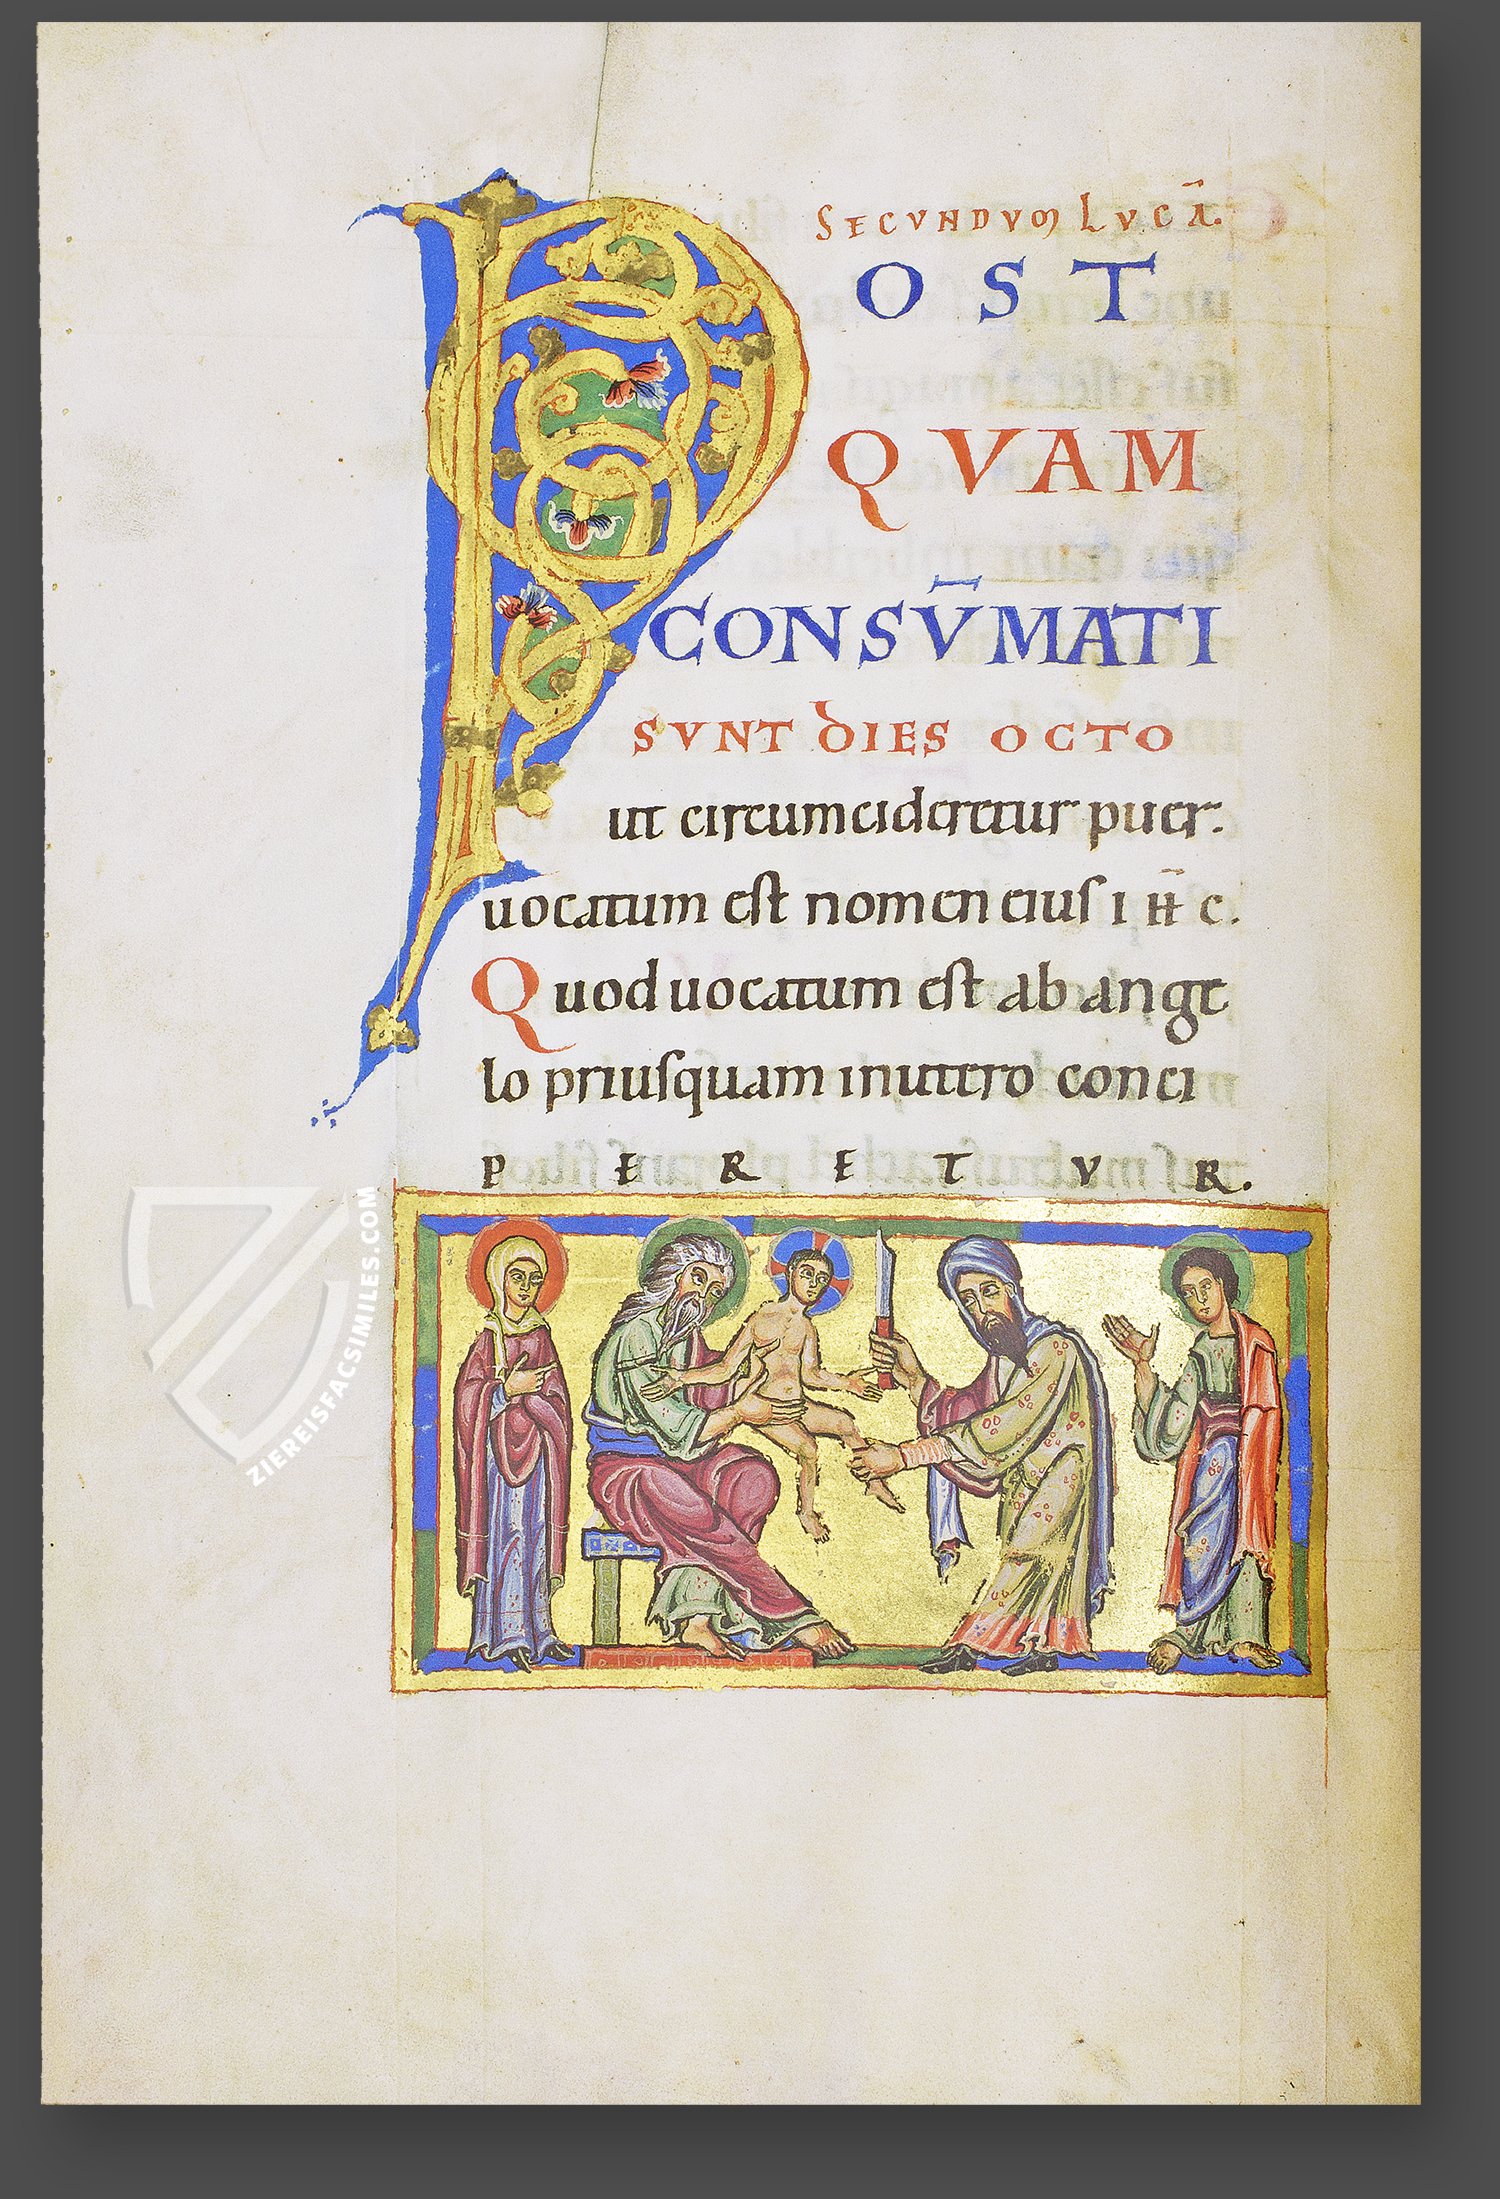 SECVNDVM LVCĀ.
POST
QVAM
CONSV̄MATI
SVNT DIES OCTO
ut circumcideretur puer.
uocatum est nomen eius ıH̄c.
Quod uocatum est ab ange
lo priusquam in utero conci
PERETVR.
ZIEREISFACSIMILES.COM